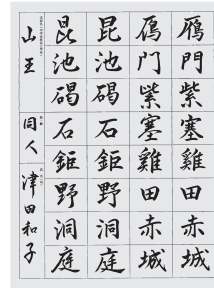 雁門紫塞雞田赤城
鴈門紫塞雞田赤城
昆池碣石鉅野洞庭
昆池碣石鉅野洞庭
山王
同人
津田和子